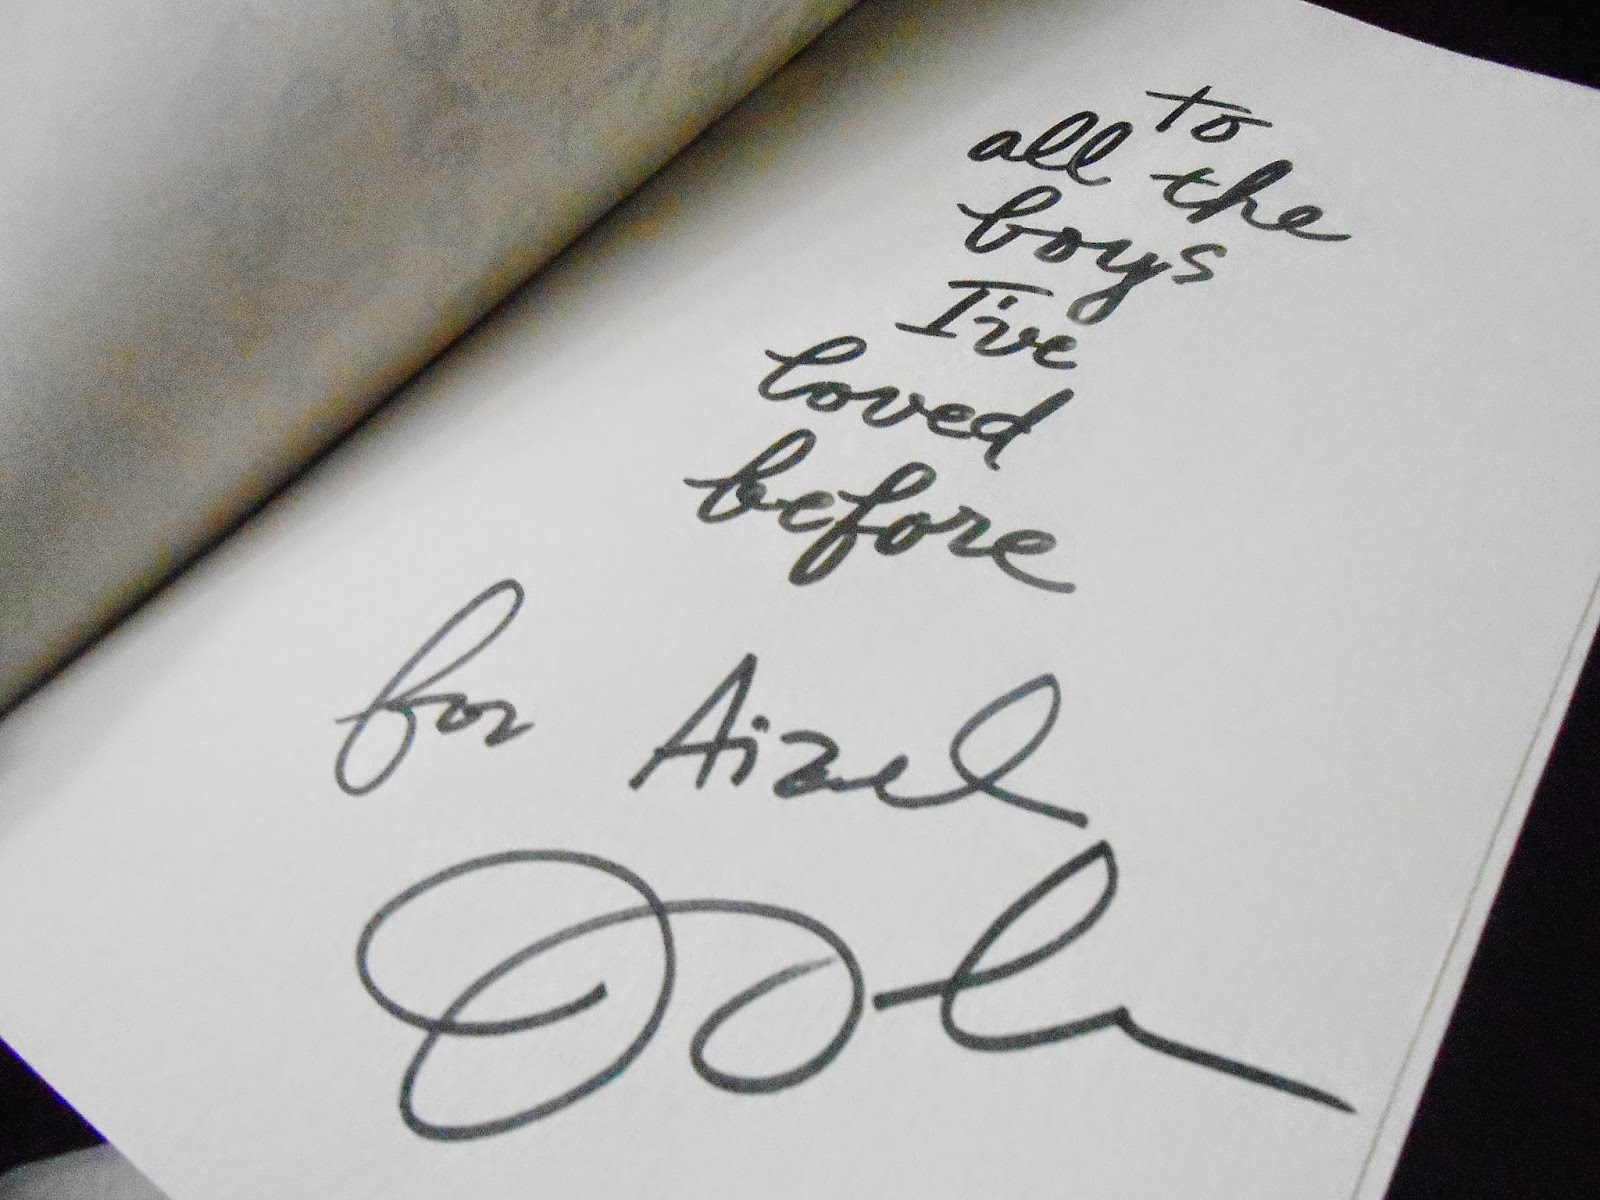 to
all the
boys
I've
loved
before
for Aizel